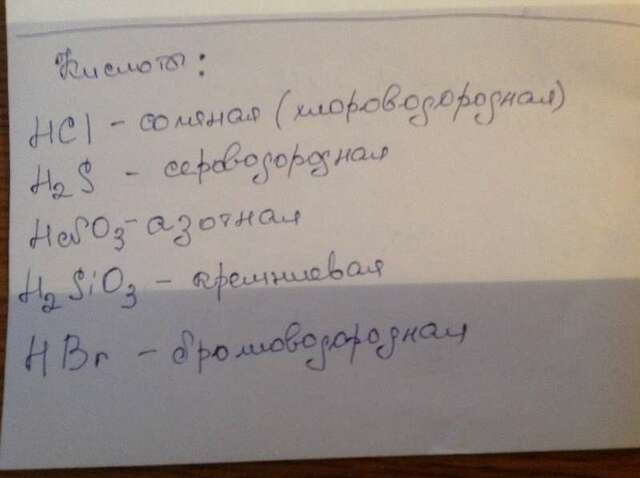 Кислоты:
HCl - соляная (хлороводородная)
H2S - сероводородная
HNO3 - азотная
H2SiO3 - кремниевая
HBr - бромоводородная